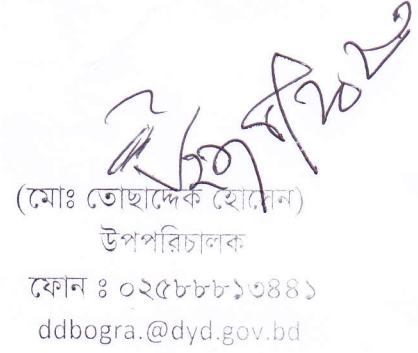 (মোঃ তোছাদ্দেক হোসেন)
উপপরিচালক
ফোন ঃ ০২৫৮৮৮১৩৪৪১
ddbogra.@dyd.gov.bd